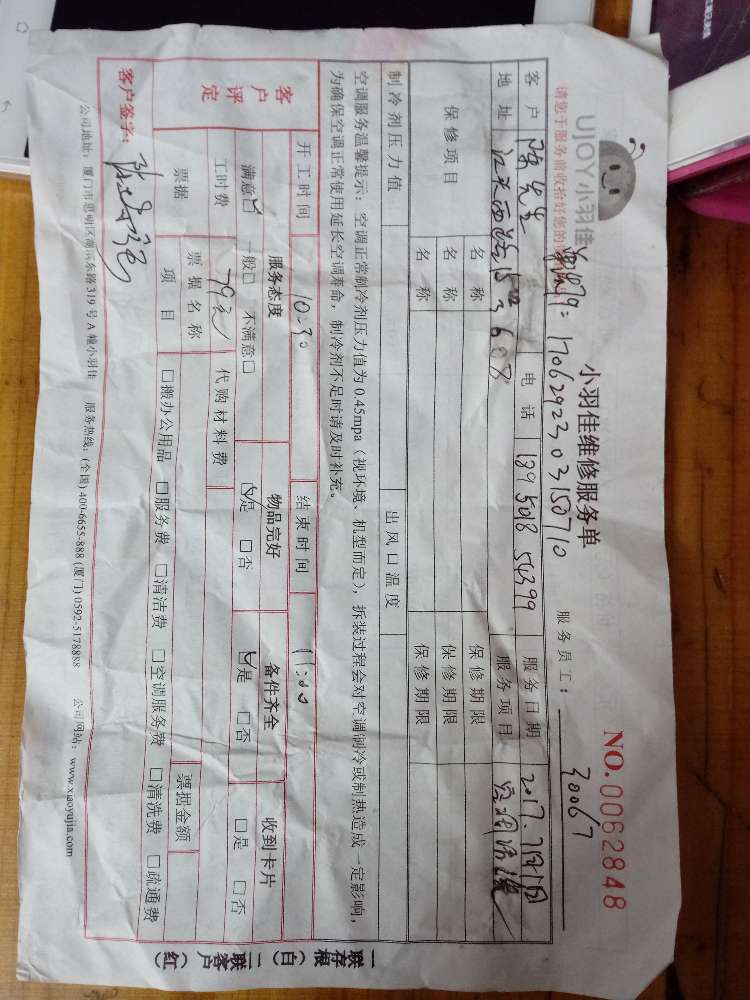 UJOY小羽佳
小羽佳维修服务单
NO.0062848
请您于服务前收拾好您的
1706292303150710
服务员工:
30067
客户 陈先生 电话 189 508 54399 服务日期 2017.7月1日
地址 608 服务项目 空调清洗
保修项目 名称 保修期限
名称 保修期限
名称 保修期限
制冷剂压力值 出风口温度
空调服务温馨提示:空调正常制冷剂压力值为0.45mpa(视环境、机型而定),拆装过程会对空调制冷或制热造成一定影响,
为确保空调正常使用延长空调寿命,制冷剂不足时请及时补充。
开工时间 10:30 结束时间 11:00
客户评定 服务态度 物品完好 备件齐全 收到卡片
满意☑ 一般□ 不满意□ ☑是 □否 ☑是 □否 □是 □否
工时费 79元 代购材料费
票据 票据名称 票据金额
项目 □搬办公用品 □服务费 □清洁费 □空调服务费 □清洗费 □疏通费
客户签字:
公司地址:厦门市思明区湖滨东路319号A幢小羽佳 服务热线:(全国)400-6655-888 (厦门)0592-5178888 公司网站:www.xiaoyujia.com
一联存根(白)二联客户(红)